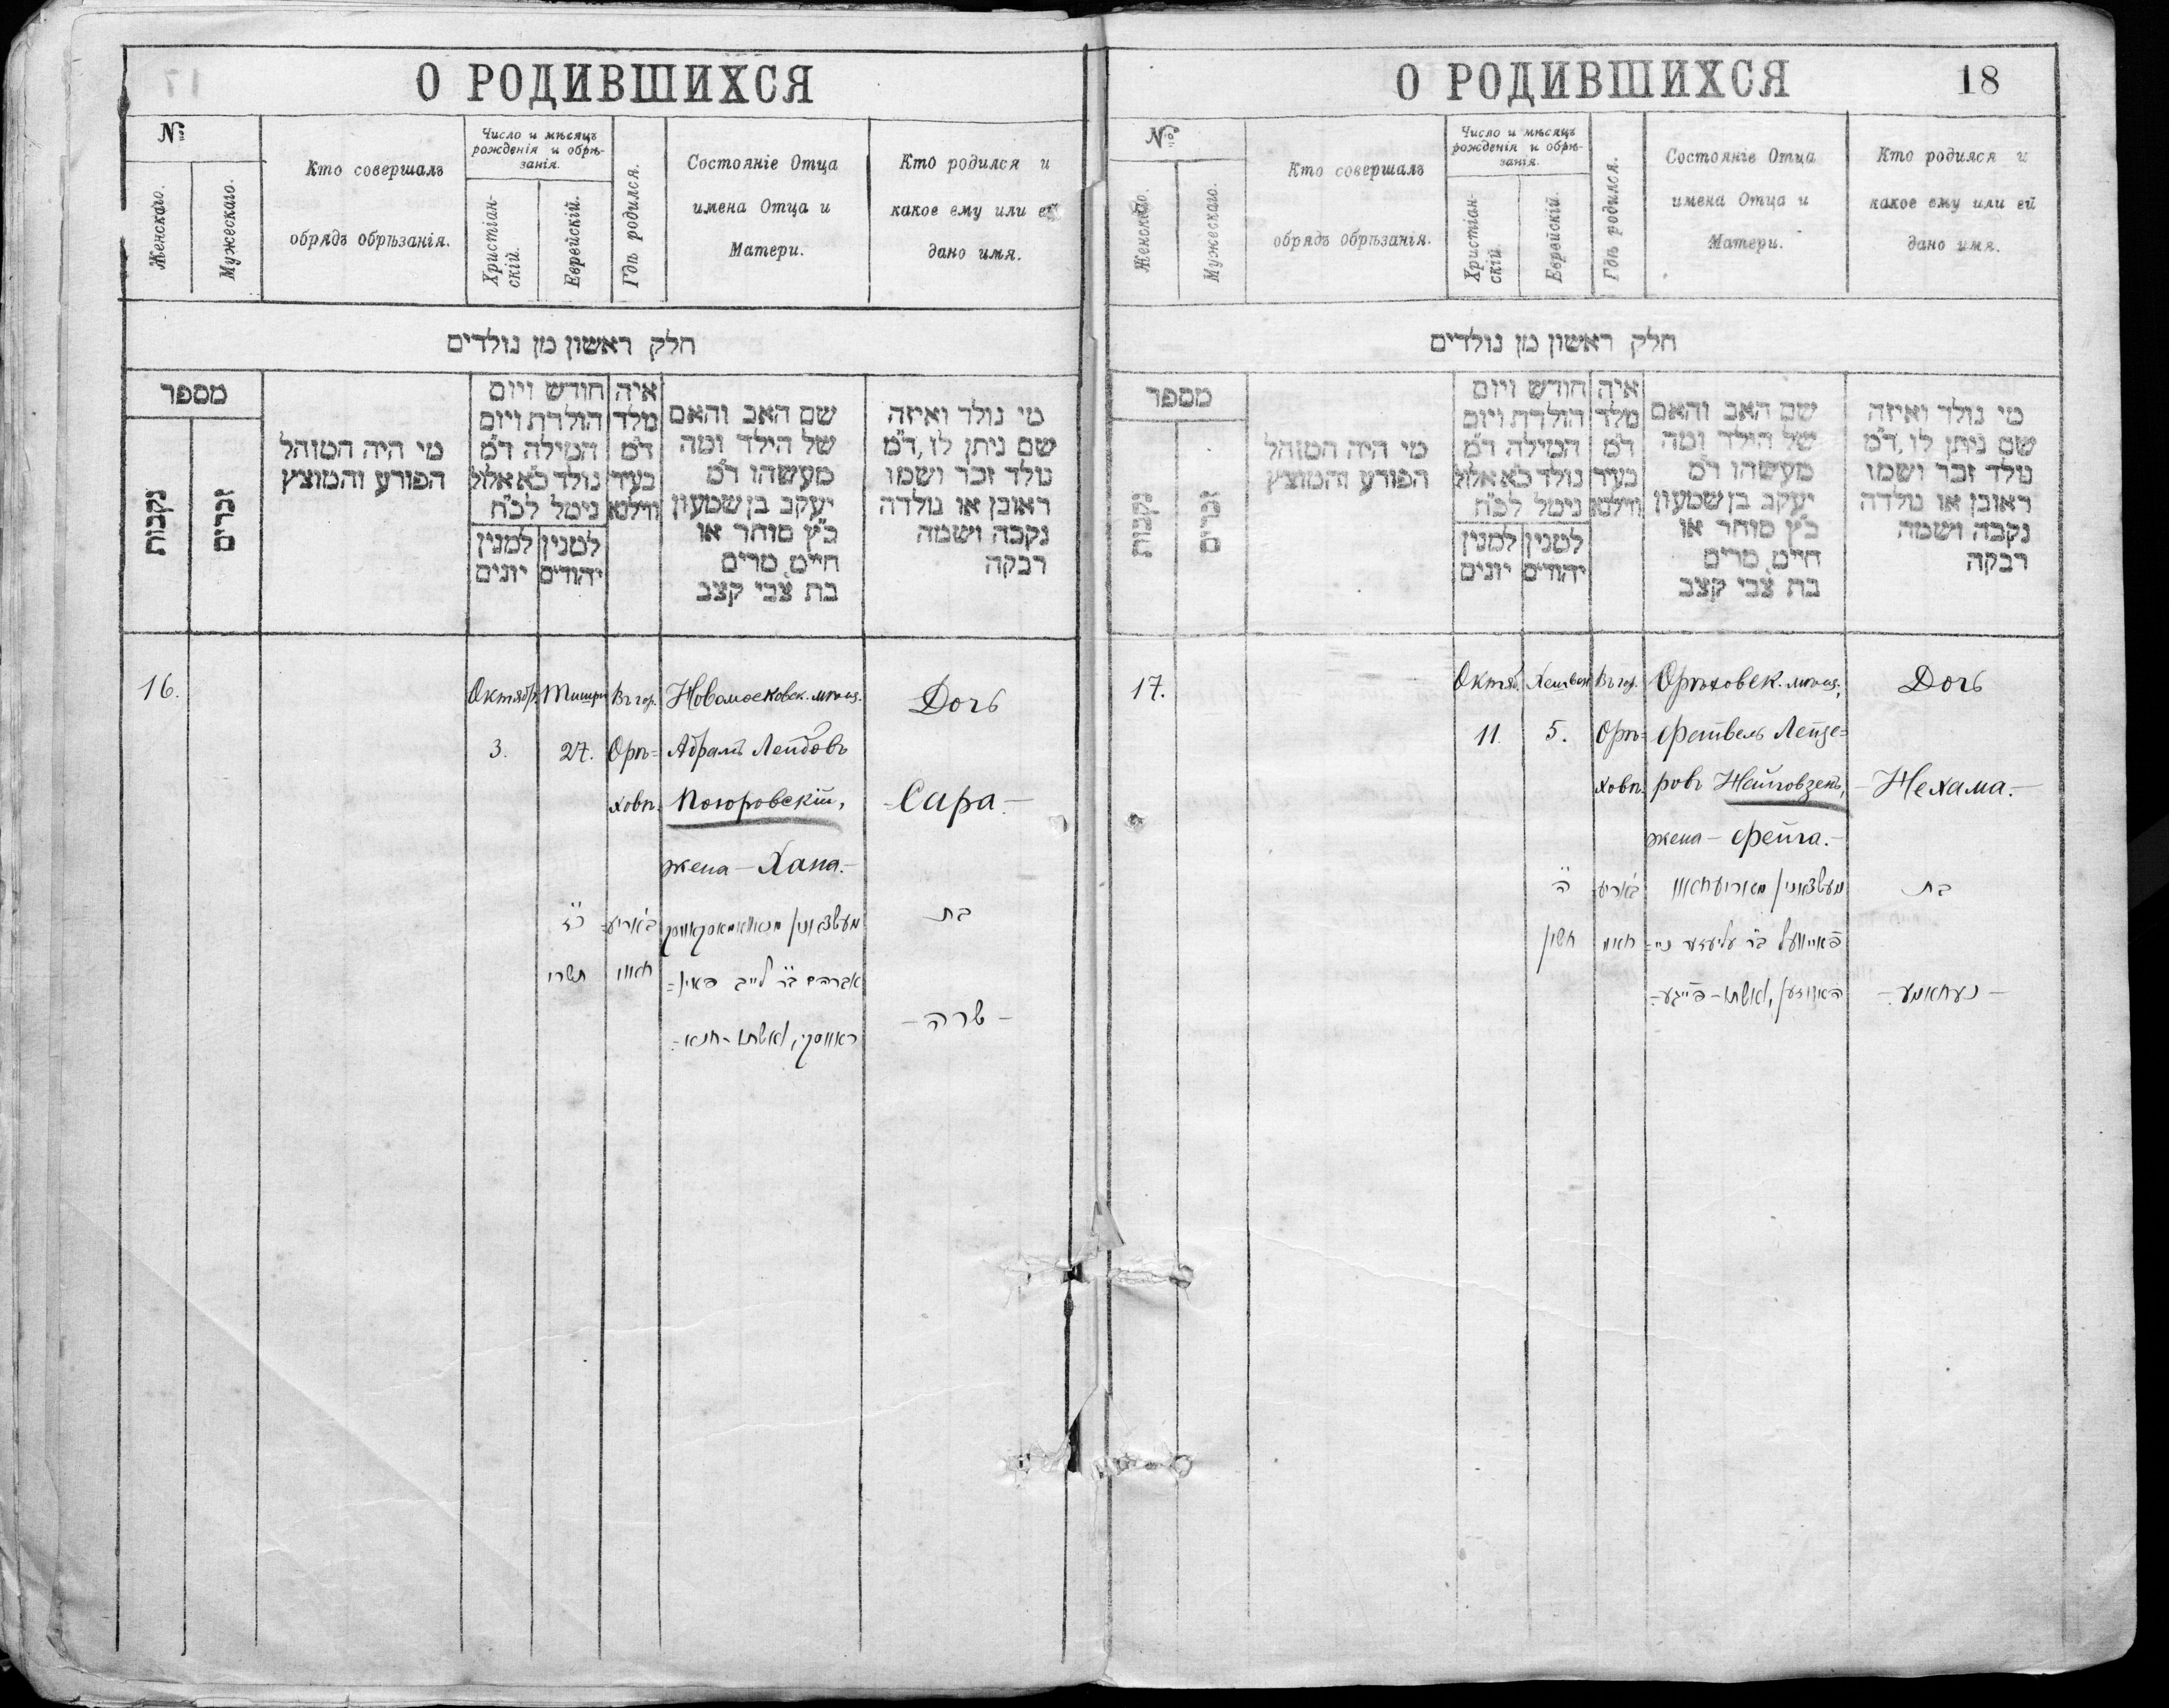 О РОДИВШИХСЯ
№
Женскаго.
Мужескаго.
Кто совершалъ
обрядъ обрѣзанія.
Число и мѣсяцъ
рожденія и обрѣ-
занія.
Христіан-
скій.
Еврейскій.
Гдѣ родился.
Состояніе Отца
имена Отца и
Матери.
Кто родился и
какое ему или ей
дано имя.
חלק ראשון מן נולדים
מספר
נקבות
זכרים
מי היה המוהל
הפורע והמוצץ
חודש ויום
הולדת ויום
המילה ד"מ
נולד כ"א אלול
נימל לכ"ח
למנין יהודים
למנין יונים
איה
מלד
ד"מ
בעיר
ווילנא
שם האב והאם
של הילד ומה
מעשהו ד"מ
יעקב בן שמעון
כ"ץ סוחר או
חייט, מרים
בת צבי קצב
מי נולד ואיזה
שם ניתן לו, ד"מ
נולד זכר ושמו
ראובן או נולדה
נקבה ושמה
רבקה
16.
Октябр.
3.
Тишри
27.
Въ гор.
Орѣ=
ховѣ.
Новомосковск. мѣщ.
Абрамъ Лейбовъ
Погоровскій,
жена – Хана. –
Дочь
– Сара. –
כ"ז
תשרי
אברהם ב"ר לייב
בת
– שרה –
О РОДИВШИХСЯ
18
№
Женскаго.
Мужескаго.
Кто совершалъ
обрядъ обрѣзанія.
Число и мѣсяцъ
рожденія и обрѣ-
занія.
Христіан-
скій.
Еврейскій.
Гдѣ родился.
Состояніе Отца
имена Отца и
Матери.
Кто родился и
какое ему или ей
дано имя.
חלק ראשון מן נולדים
מספר
נקבות
זכרים
מי היה המוהל
הפורע והמוצץ
חודש ויום
הולדת ויום
המילה ד"מ
נולד כ"א אלול
נימל לכ"ח
למנין יהודים
למנין יונים
איה
מלד
ד"מ
בעיר
ווילנא
שם האב והאם
של הילד ומה
מעשהו ד"מ
יעקב בן שמעון
כ"ץ סוחר או
חייט, מרים
בת צבי קצב
מי נולד ואיזה
שם ניתן לו, ד"מ
נולד זכר ושמו
ראובן או נולדה
נקבה ושמה
רבקה
17.
Октяб.
11.
Хешван
5.
Въ гор.
Орѣ=
ховѣ.
Орѣховск. мѣщ.,
Фейвель Лейзе=
ровъ
жена – Фейга. –
Дочь
– Нехама. –
ה"
חשון
בת
– נעחאמע –